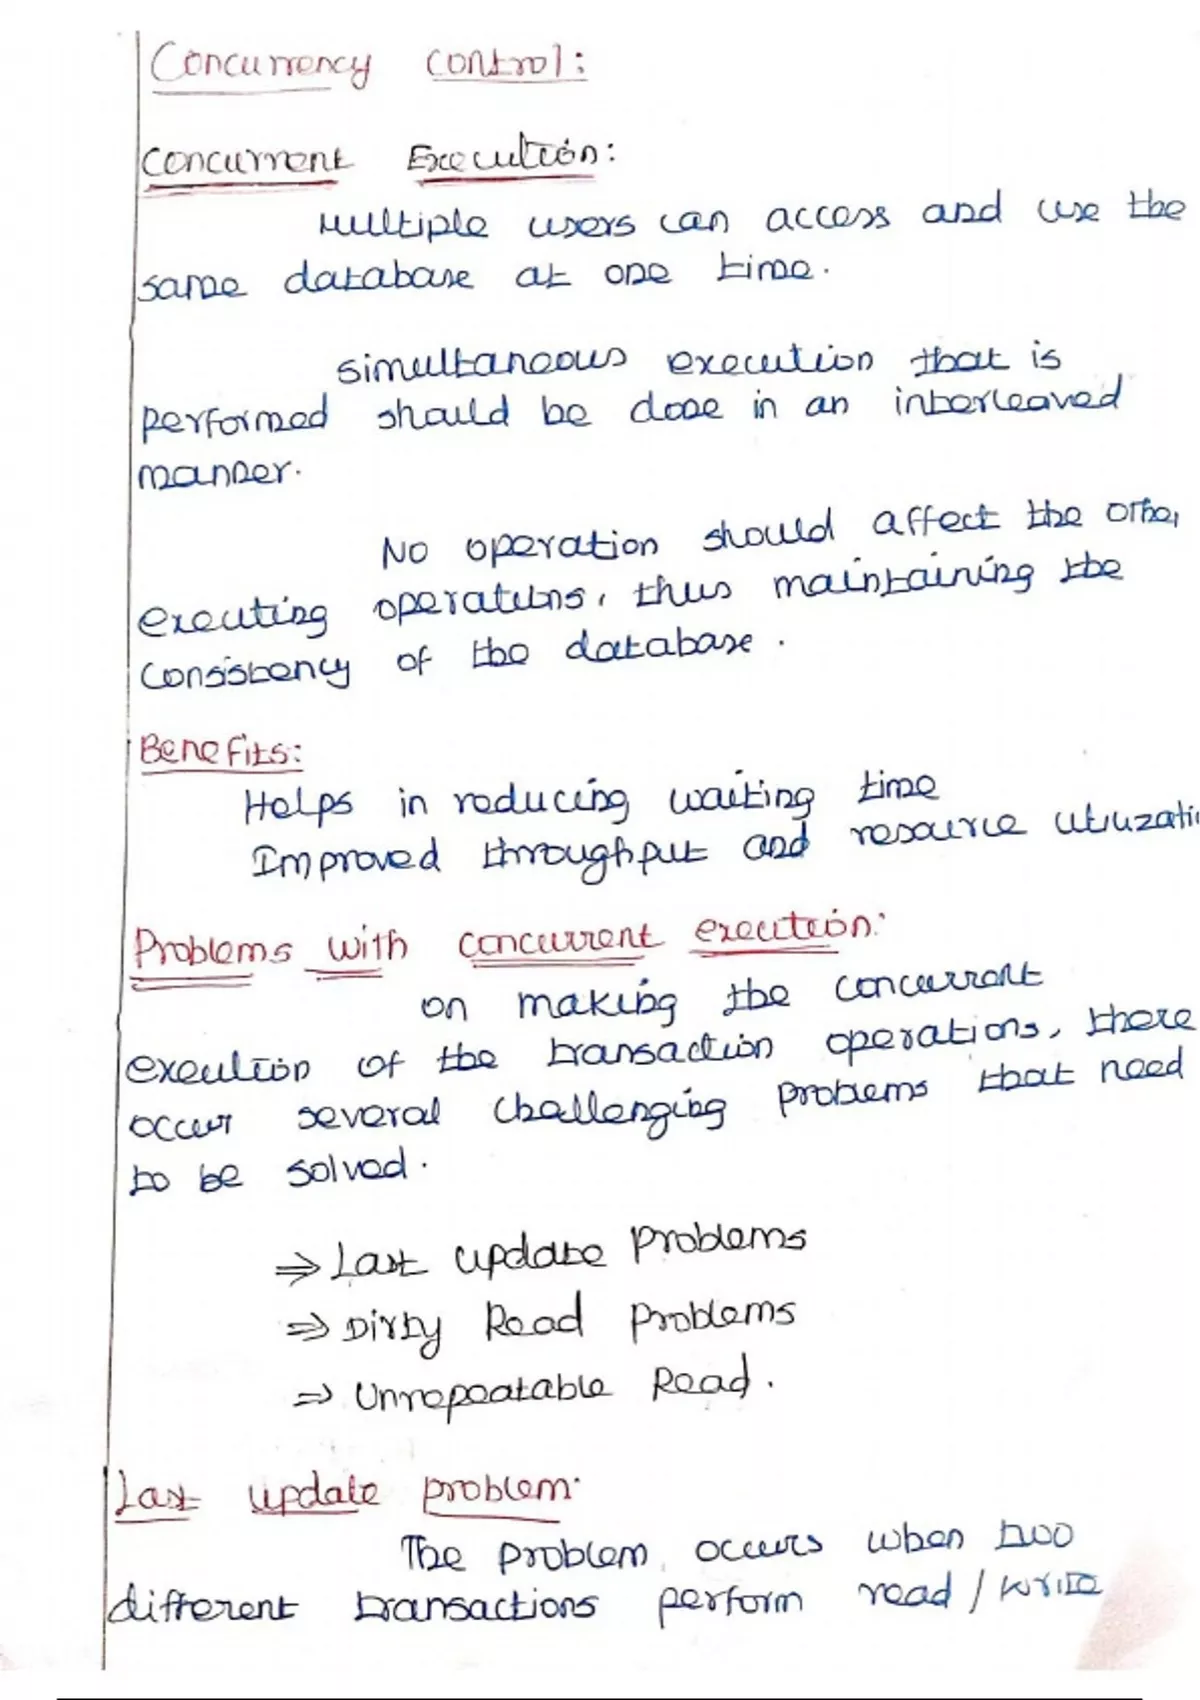 Concurrency control:
Concurrent Execution:
Multiple users can access and use the
same database at one time.
simultaneous execution that is
performed should be done in an interleaved
manner.
No operation should affect the other
executing operations, thus maintaining the
consistency of the database.
Benefits:
Helps in reducing waiting time
Improved throughput and resource utilizati
Problems with concurrent execution:
on making the concurrent
execution of the transaction operations, there
occur several challenging problems that need
to be solved.
⇒ Last update problems
⇒ Dirty Read problems
⇒ Unrepeatable Read.
Last update problem:
The problem occurs when two
different transactions perform read / write